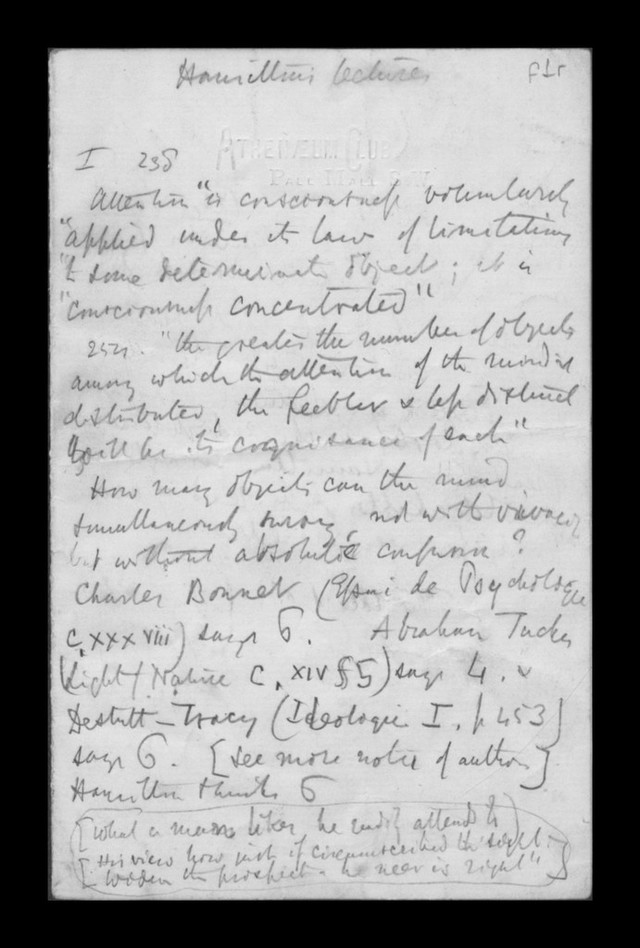 Hamilton's lectures
f1r
ATHENÆUM CLUB
PALL MALL S.W.
I 238
Attention "is consciousness voluntarily
"applied under its law of limitations
"to some determinate object; it is
"consciousness concentrated"
"the greater the number of objects
among which the attention of the mind is
distributed, the feebler & less distinct
will be its cognisance of each"
How many objects can the mind
simultaneously survey, not with vivacity
but without absolute confusion?
Charles Bonnet (Essai de Psychologie
c. XXXVIII) says 6. Abraham Tucker
(Light of Nature c. XIV §5) says 4. &
Destutt-Tracy (Ideologie I. p 453)
says 6. [see more notes of author]
Hamilton thinks 6
[What a man likes, he easily attends to]
[His view how just if circumscribed the sight.
the prospect - he never is right"]